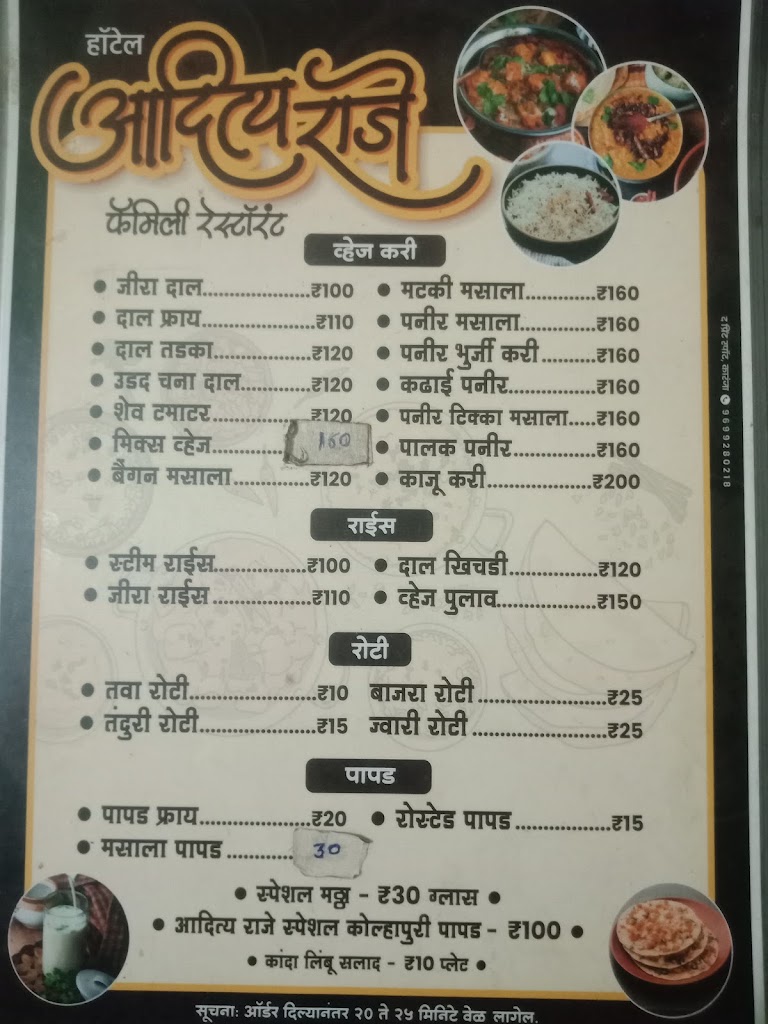 हॉटेल
आदित्य राजे
फॅमिली रेस्टॉरंट
व्हेज करी
• जीरा दाल......................₹100
• दाल फ्राय.......................₹110
• दाल तडका....................₹120
• उडद चना दाल...............₹120
• शेव टमाटर....................₹120
• मिक्स व्हेज............... 160
• बैंगन मसाला...............₹120
• मटकी मसाला..............₹160
• पनीर मसाला...............₹160
• पनीर भुर्जी करी...........₹160
• कढाई पनीर.................₹160
• पनीर टिक्का मसाला.....₹160
• पालक पनीर................₹160
• काजू करी.....................₹200
राईस
• स्टीम राईस..................₹100
• जीरा राईस...................₹110
• दाल खिचडी.................₹120
• व्हेज पुलाव...................₹150
रोटी
• तवा रोटी.........................₹10
• तंदुरी रोटी.......................₹15
बाजरा रोटी.........................₹25
ज्वारी रोटी..........................₹25
पापड
• पापड फ्राय.....................₹20
• मसाला पापड ............ 30
• रोस्टेड पापड..................₹15
• स्पेशल मठ्ठा - ₹30 ग्लास •
• आदित्य राजे स्पेशल कोल्हापुरी पापड - ₹100 •
• कांदा लिंबू सलाद - ₹10 प्लेट •
सूचना: ऑर्डर दिल्यानंतर २० ते २५ मिनिटे वेळ लागेल.
9699280218